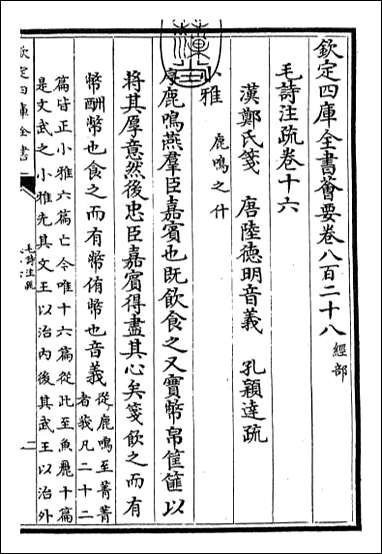 欽定四庫全書薈要卷八百二十八 經部
毛詩注疏卷十六
漢鄭氏箋 唐陸德明音義 孔穎達疏
小雅 鹿鳴之什
序鹿鳴燕羣臣嘉賓也既飲食之又實幣帛筐篚以
將其厚意然後忠臣嘉賓得盡其心矣箋飲之而有
幣酬幣也食之而有幣侑幣也音義從鹿鳴至菁菁
者莪凡二十二
篇皆正小雅六篇亡今唯十六篇從此至魚麗十篇
是文武之小雅先其文王以治內後其武王以治外
欽定四庫全書
毛詩注疏